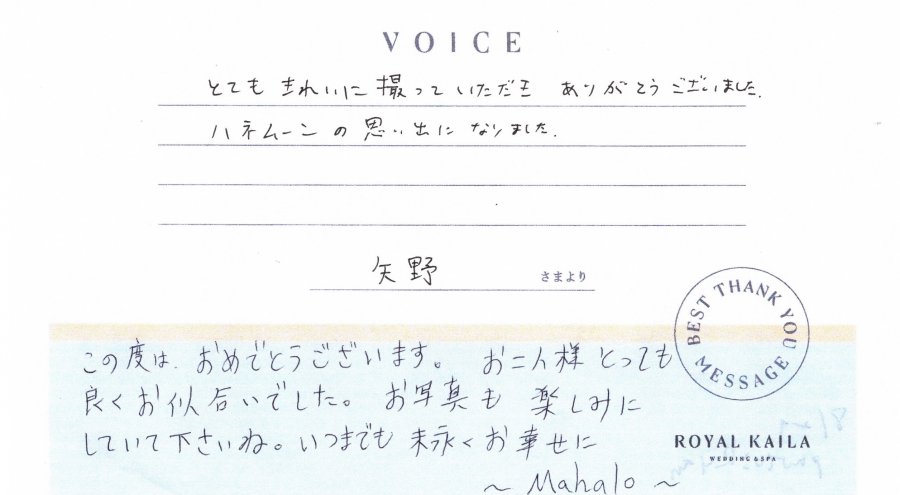 VOICE
とても きれいに 撮って いただき ありがとうございました.
ハネムーンの 思い出に なりました.
矢野 さまより
BEST THANK YOU MESSAGE
この度は、おめでとうございます。 お二人様 とっても
良く お似合いでした。 お写真も 楽しみに
していて下さいね。いつまでも 末永く お幸せに
ROYAL KAILA
WEDDING & SPA
~ Mahalo ~